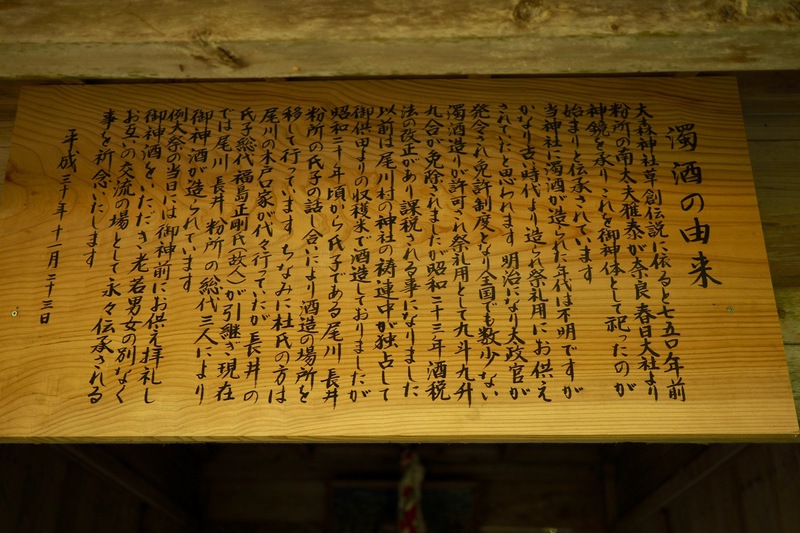 濁酒の由来
大森神社草創伝説に依ると七五〇年前
粉所の南太夫雅泰が奈良春日大社より
神鏡を承りこれを御神体として祀ったのが
始まりと伝承されています
当神社に濁酒が造られた年代は不明ですが
かなり古い時代より造られ祭礼用にお供え
されていたと思われます 明治になり太政官が
発令され免許制度となり全国でも数少ない
濁酒造りが許可され祭礼用として九斗九升
九合が免除されましたが昭和二十三年酒税
法の改正があり課税される事になりました
以前は尾川村の神社の祷連中が独占して
御供田よりの収穫米で酒造しておりましたが
昭和二十年頃から氏子である尾川 長井
粉所の氏子の話し合いにより酒造の場所を
移して行っています ちなみに杜氏の方は
尾川の木戸口家が代々行っていたが長井の
氏子総代福島正剛氏(故人)が引継ぎ現在
では尾川 長井 粉所の総代三人により
御神酒が造られています
例大祭の当日には御神前にお供え拝礼し
御神酒をいただき老若男女の別なく
お互いの交流の場として永々伝承される
事を祈念いたします
平成三十年十一月二十三日